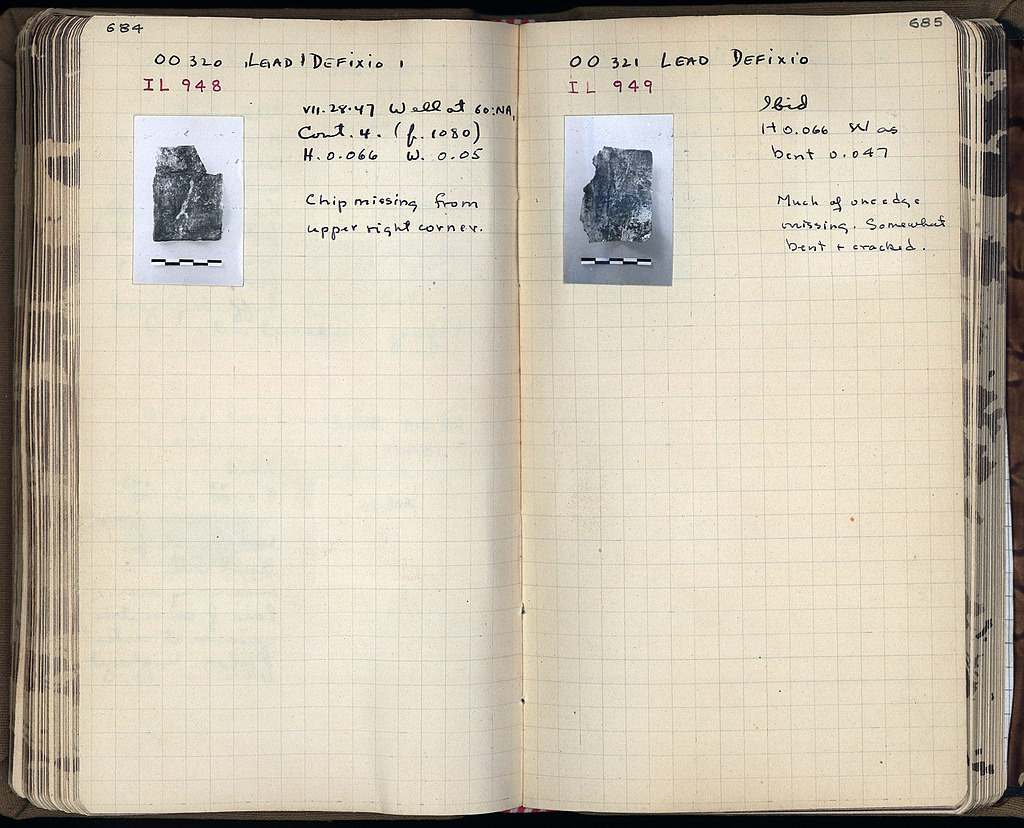 684
OO 320 LEAD DEFIXIO
IL 948
VII.28.47 Well at 60:NA,
Cont. 4. (p. 1080)
H. 0.066 W. 0.05
Chip missing from
upper right corner.
685
OO 321 LEAD DEFIXIO
IL 949
Ibid
H 0.066 W as
bent 0.047
Much of one edge
missing. Somewhat
bent + cracked.